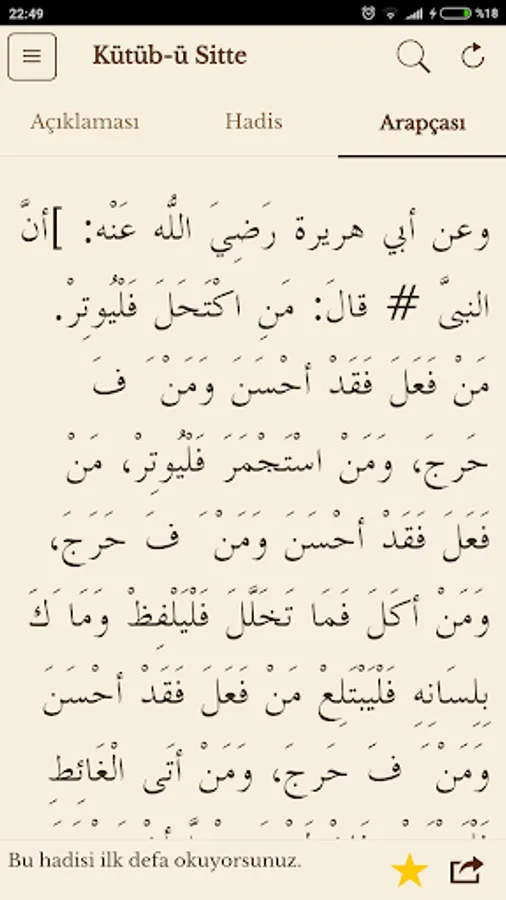 22:49
%18
Kütüb-ü Sitte
Açıklaması
Hadis
Arapçası
وعن أبي هريرة رَضِيَ اللّٰه عَنْه: ]أنَّ
النبىَّ # قالَ: مَنِ اكْتَحَلَ فَلْيُوتِرْ.
مَنْ فَعَلَ فَقَدْ أحْسَنَ وَمَنْ َ فَ
حَرجَ، وَمَنْ اسْتَجْمَرَ فَلْيُوتِرْ، مَنْ
فَعَلَ فَقَدْ أحْسَنَ وَمَنْ َ فَ حَرَجَ،
وَمَنْ أكَلَ فَمَا تَخَلَّلَ فَلْيَلْفِظْ وَمَا َكَ
بِلِسَانِهِ فَلْيَبْتَلِعْ مَنْ فَعَلَ فَقَدْ أحْسَنَ
وَمَنْ َ فَ حَرجَ، وَمَنْ أتَى الْغَائِطِ
Bu hadisi ilk defa okuyorsunuz.